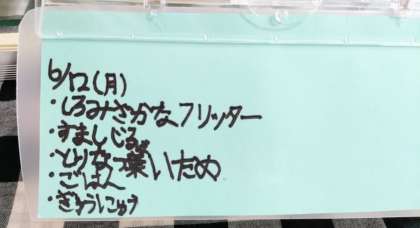 6/12(月)
・しろみざかなフリッター
・すましじる
・とりな葉いため
・ごはん
・ぎゅうにゅう